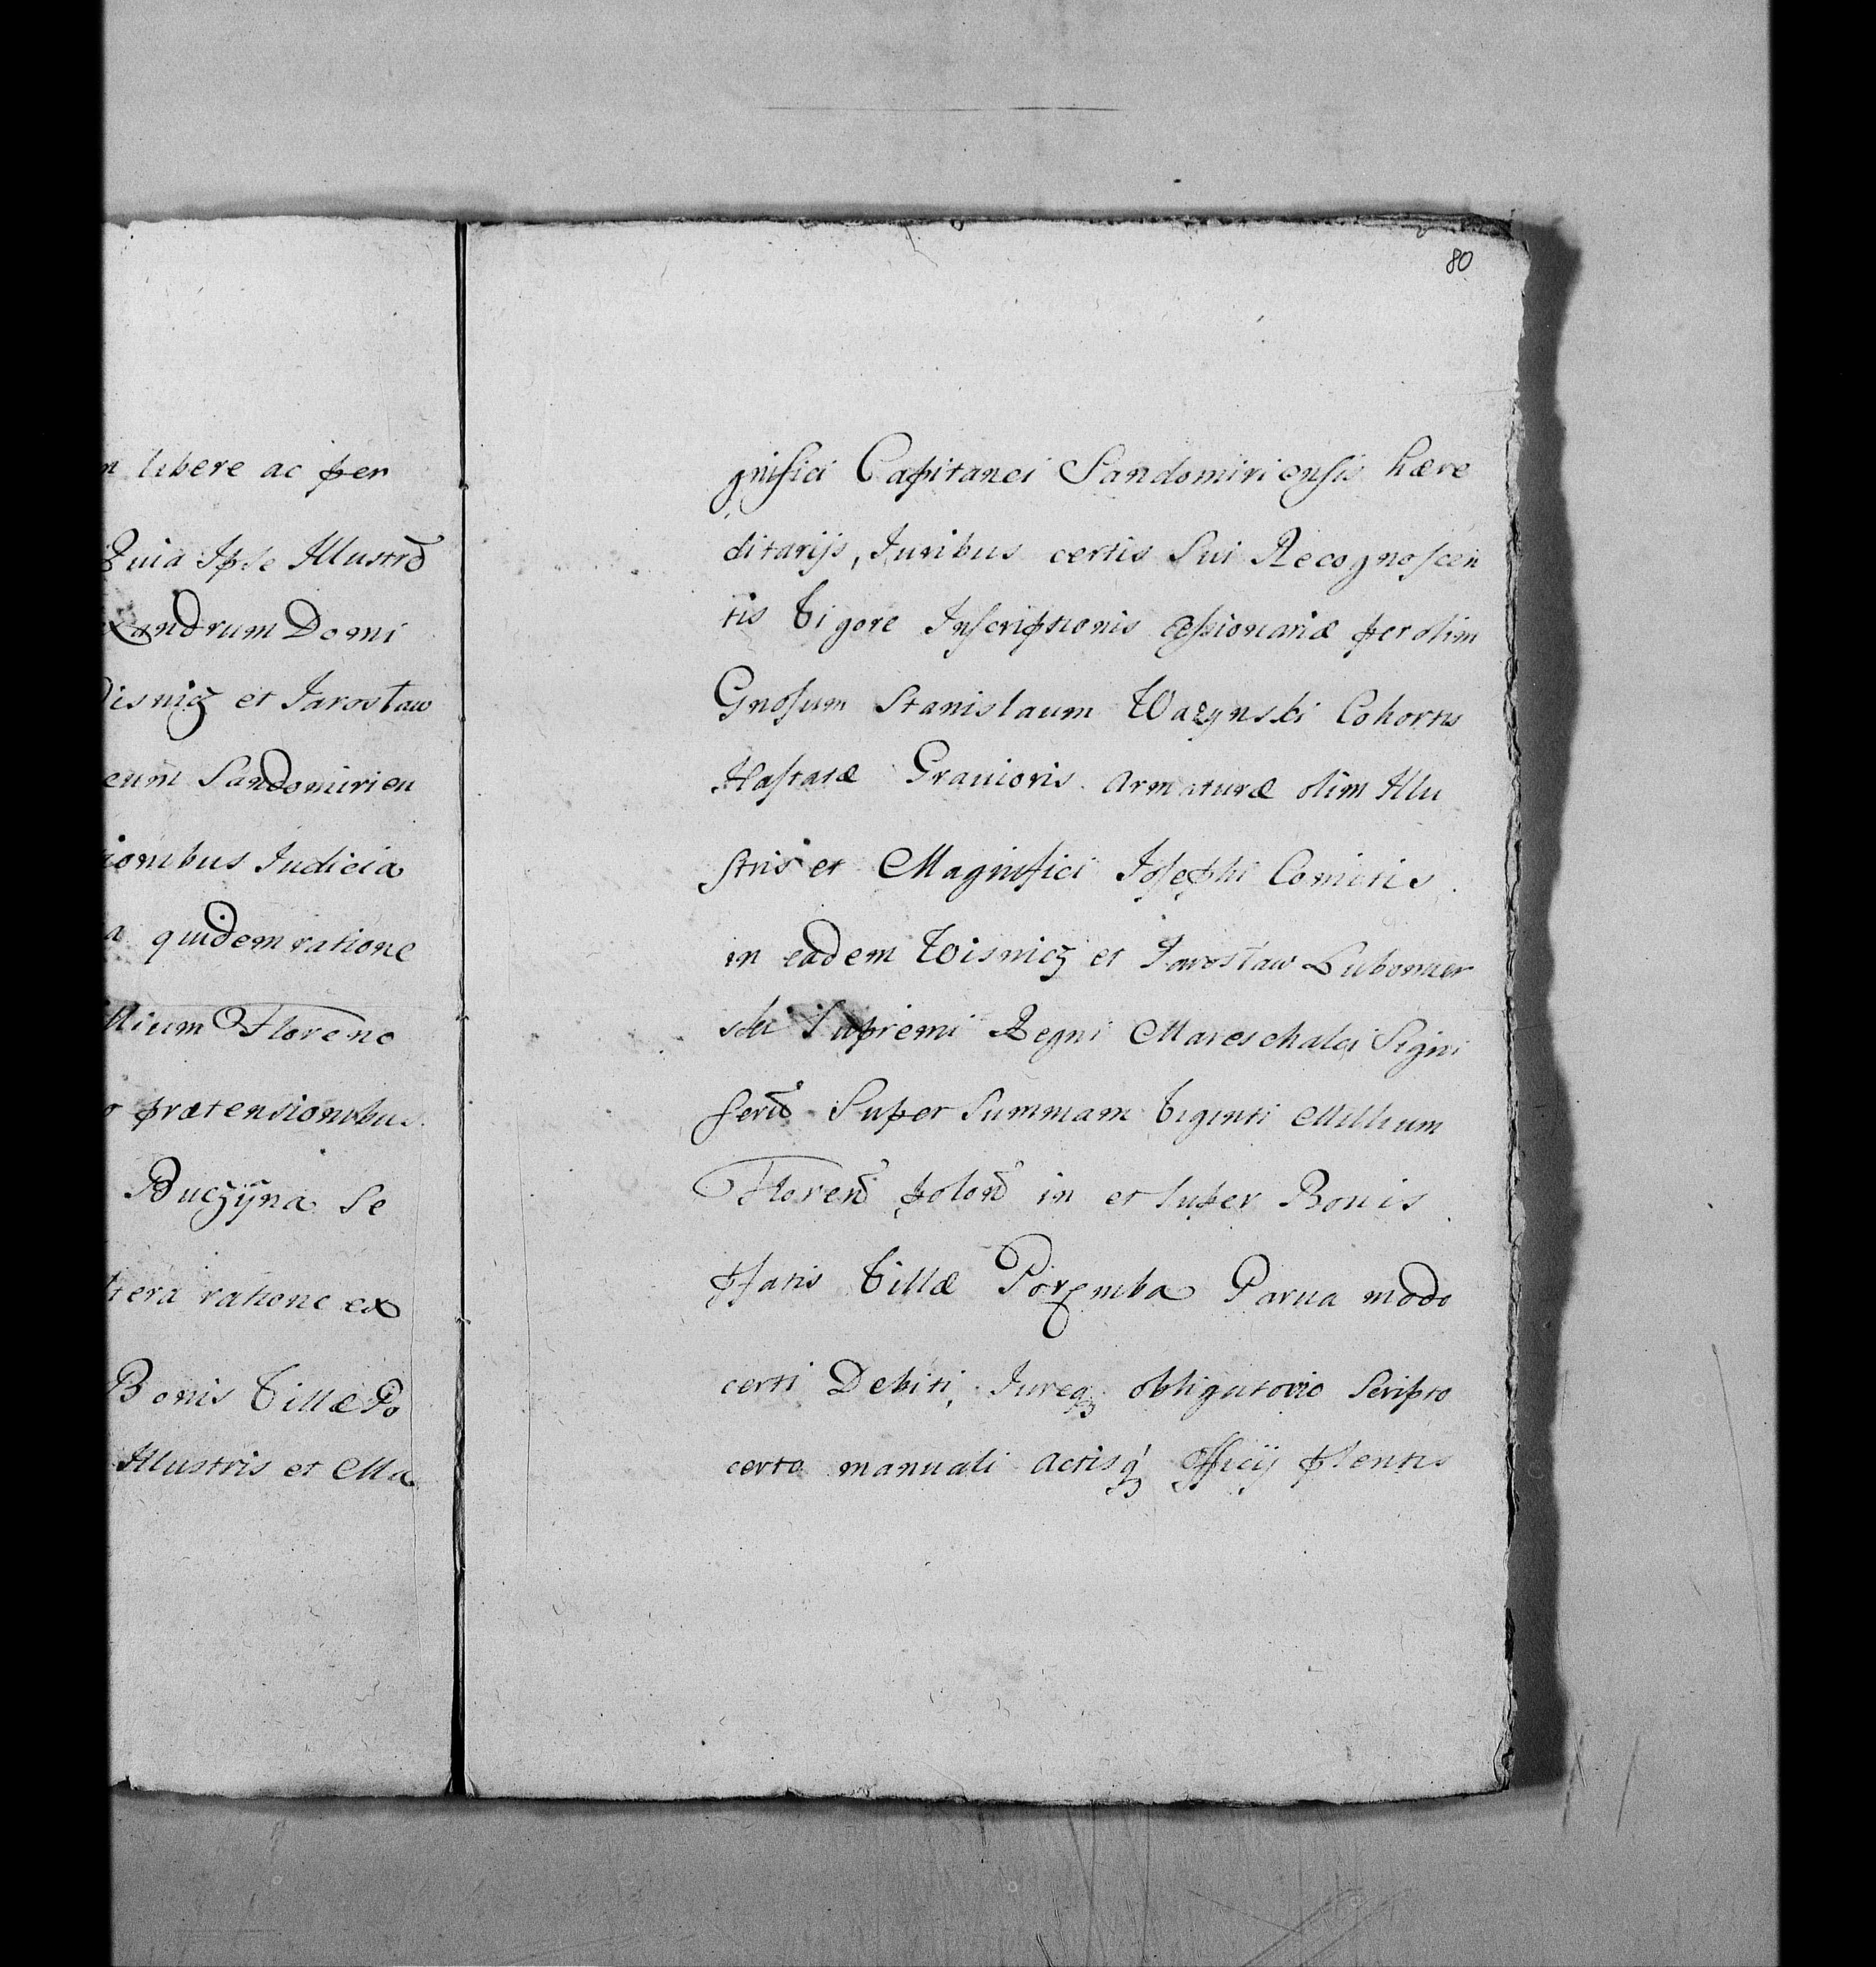 n libere ac per
Quia Ipse Illustrē
xandrum Domi
Wisnicz et Jarosław
eum Sandomirien
tionibus Judicia
a quidem ratione
Millium Floreno
o prætensionibus
Buczyna Se
tera ratione ex
Bonis Villæ Po
Illustris et Ma
80
gnifici Capitanei Sandomiriensis hære
ditarijs, Juribus certis Sui Recognoscen
tis Vigore Inscriptionis cessionariæ per olim
Gnosum Stanislaum Wazynski Cohortis
Hastatæ Gravioris Armaturæ olim Illu
stris et Magnifici Josephi Comitis
in eadem Wisnicz et Jarosław Lubomir
ski Supremi Regni Mareschalci Signi
ferū Super Summam Viginti Millium
Floren polon in et super Bonis
pfatis Villæ Poremba Parva modo
certi Debiti, Jureq obligatorio Scripto
certo manuali Actisq Officij pſentis